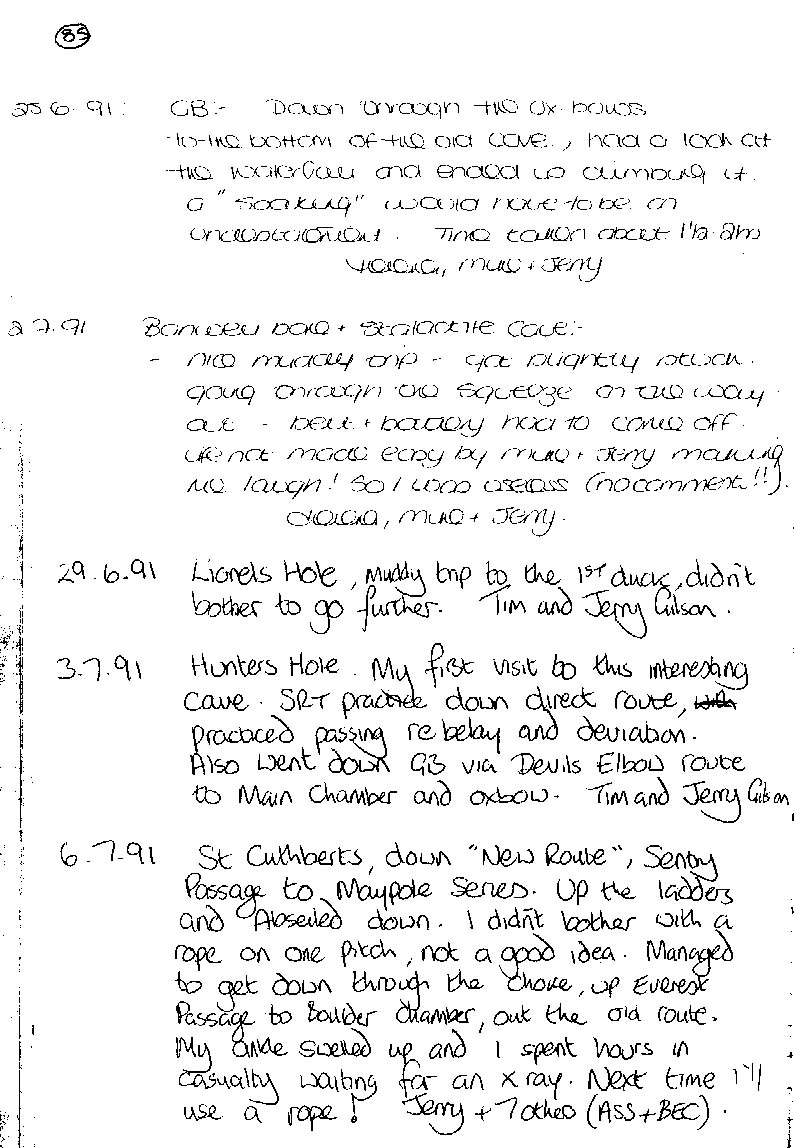 85
25.6.91: GB:- Down through the ox-bows
to the bottom of the old cave, had a look at
the waterfall and ended up climbing it.
a "soaking" would have to be an
understatement. Time taken about 1½-2hrs
, Mike + Jerry
2.7.91 Banwell bone + stalactite cave:-
- nice muddy trip - got slightly stuck
going through the squeeze on the way
out - belt + battery had to come off.
Life not made easy by Mike + Jerry making
me laugh! So I was useless (no comment!!).
, Mike + Jerry.
29.6.91 Lionels Hole, muddy trip to the 1ST duck, didn't
bother to go further. Tim and Jerry Gilson.
3.7.91 Hunters Hole. My first visit to this interesting
cave. SRT practice down direct route, with
practiced passing rebelay and deviation.
Also went down GB via Devils Elbow route
to Main Chamber and oxbow. Tim and Jerry Gilson
6.7.91 St Cuthberts, down "New Route", Sentry
Passage to Maypole Series. Up the ladders
and Abseiled down. I didn't bother with a
rope on one pitch, not a good idea. Managed
to get down through the choke, up Everest
Passage to Boulder chamber, out the old route.
My ankle swelled up and I spent hours in
casualty waiting for an x ray. Next time I'll
use a rope! Jerry + 7 others (ASS+BEC).